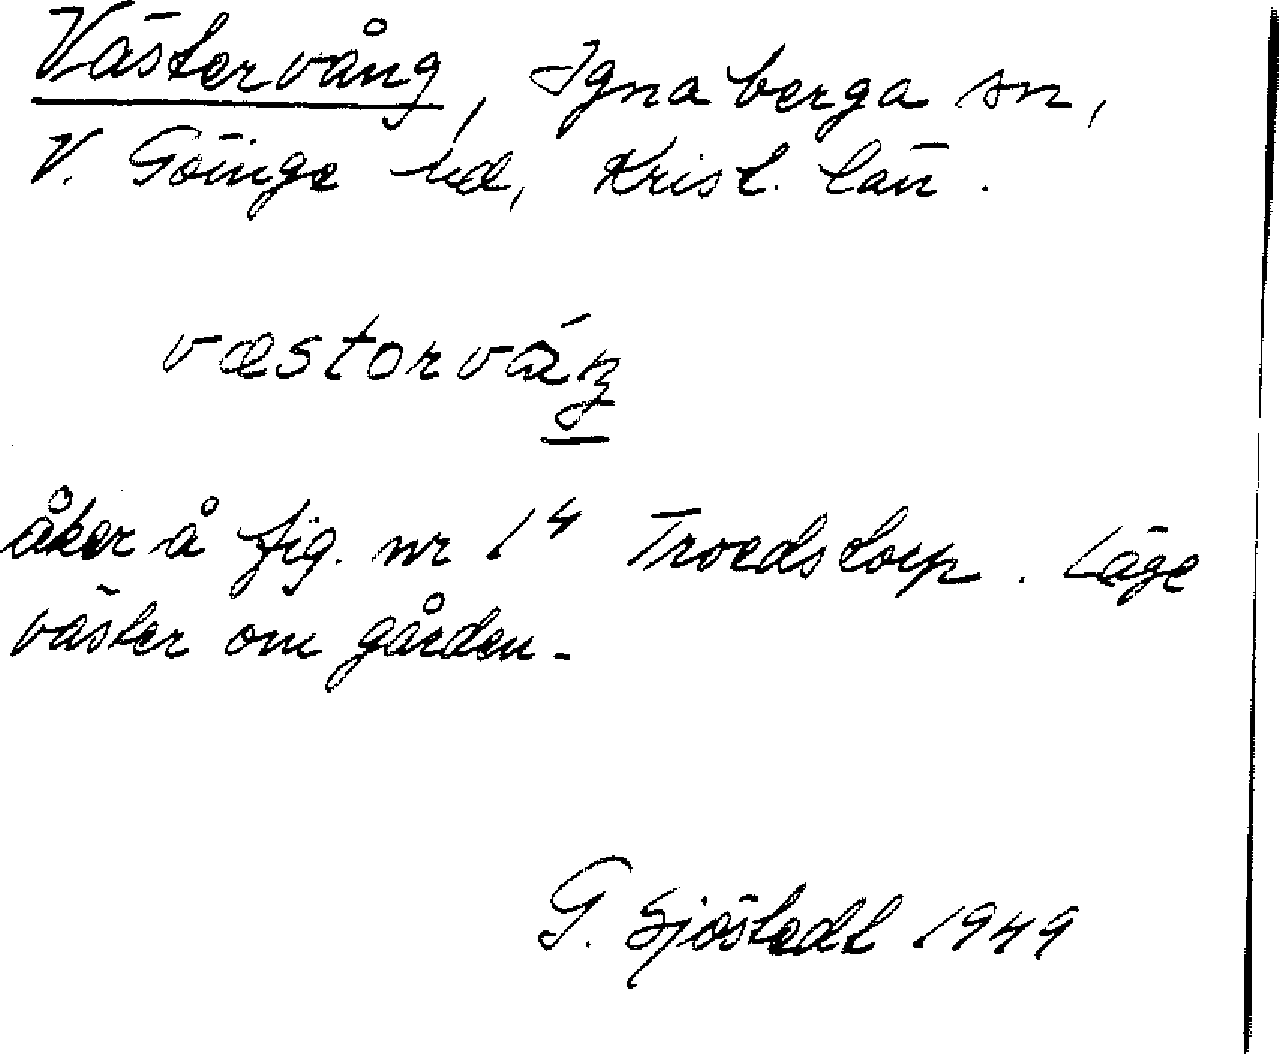 Västervång, Ignaberga sn,
V. Göinge hd, Krist. län.
væstərvåŋ
åker å fig. nr 1⁴ Troedstorp. Läge
väster om gården.
G. Sjöstedt 1949